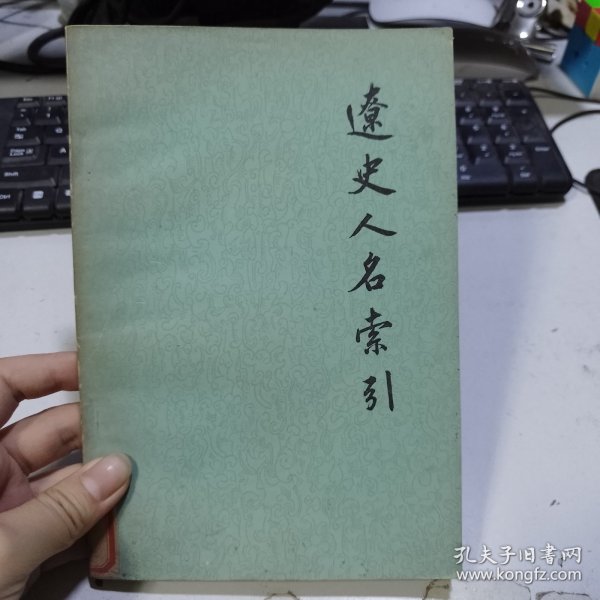 遼史人名索引
孔夫子旧书网
www.kongfz.com